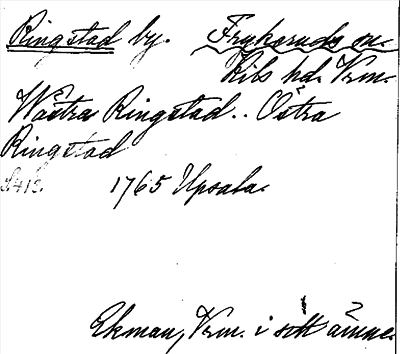 Ringstad by. Frykeruds sn.
Kils hd. Vrm.
Wästra Ringstad.. Östra
Ringstad
S.413. 1765 Upsala.
Ekman, Vrm. i sitt ämne.